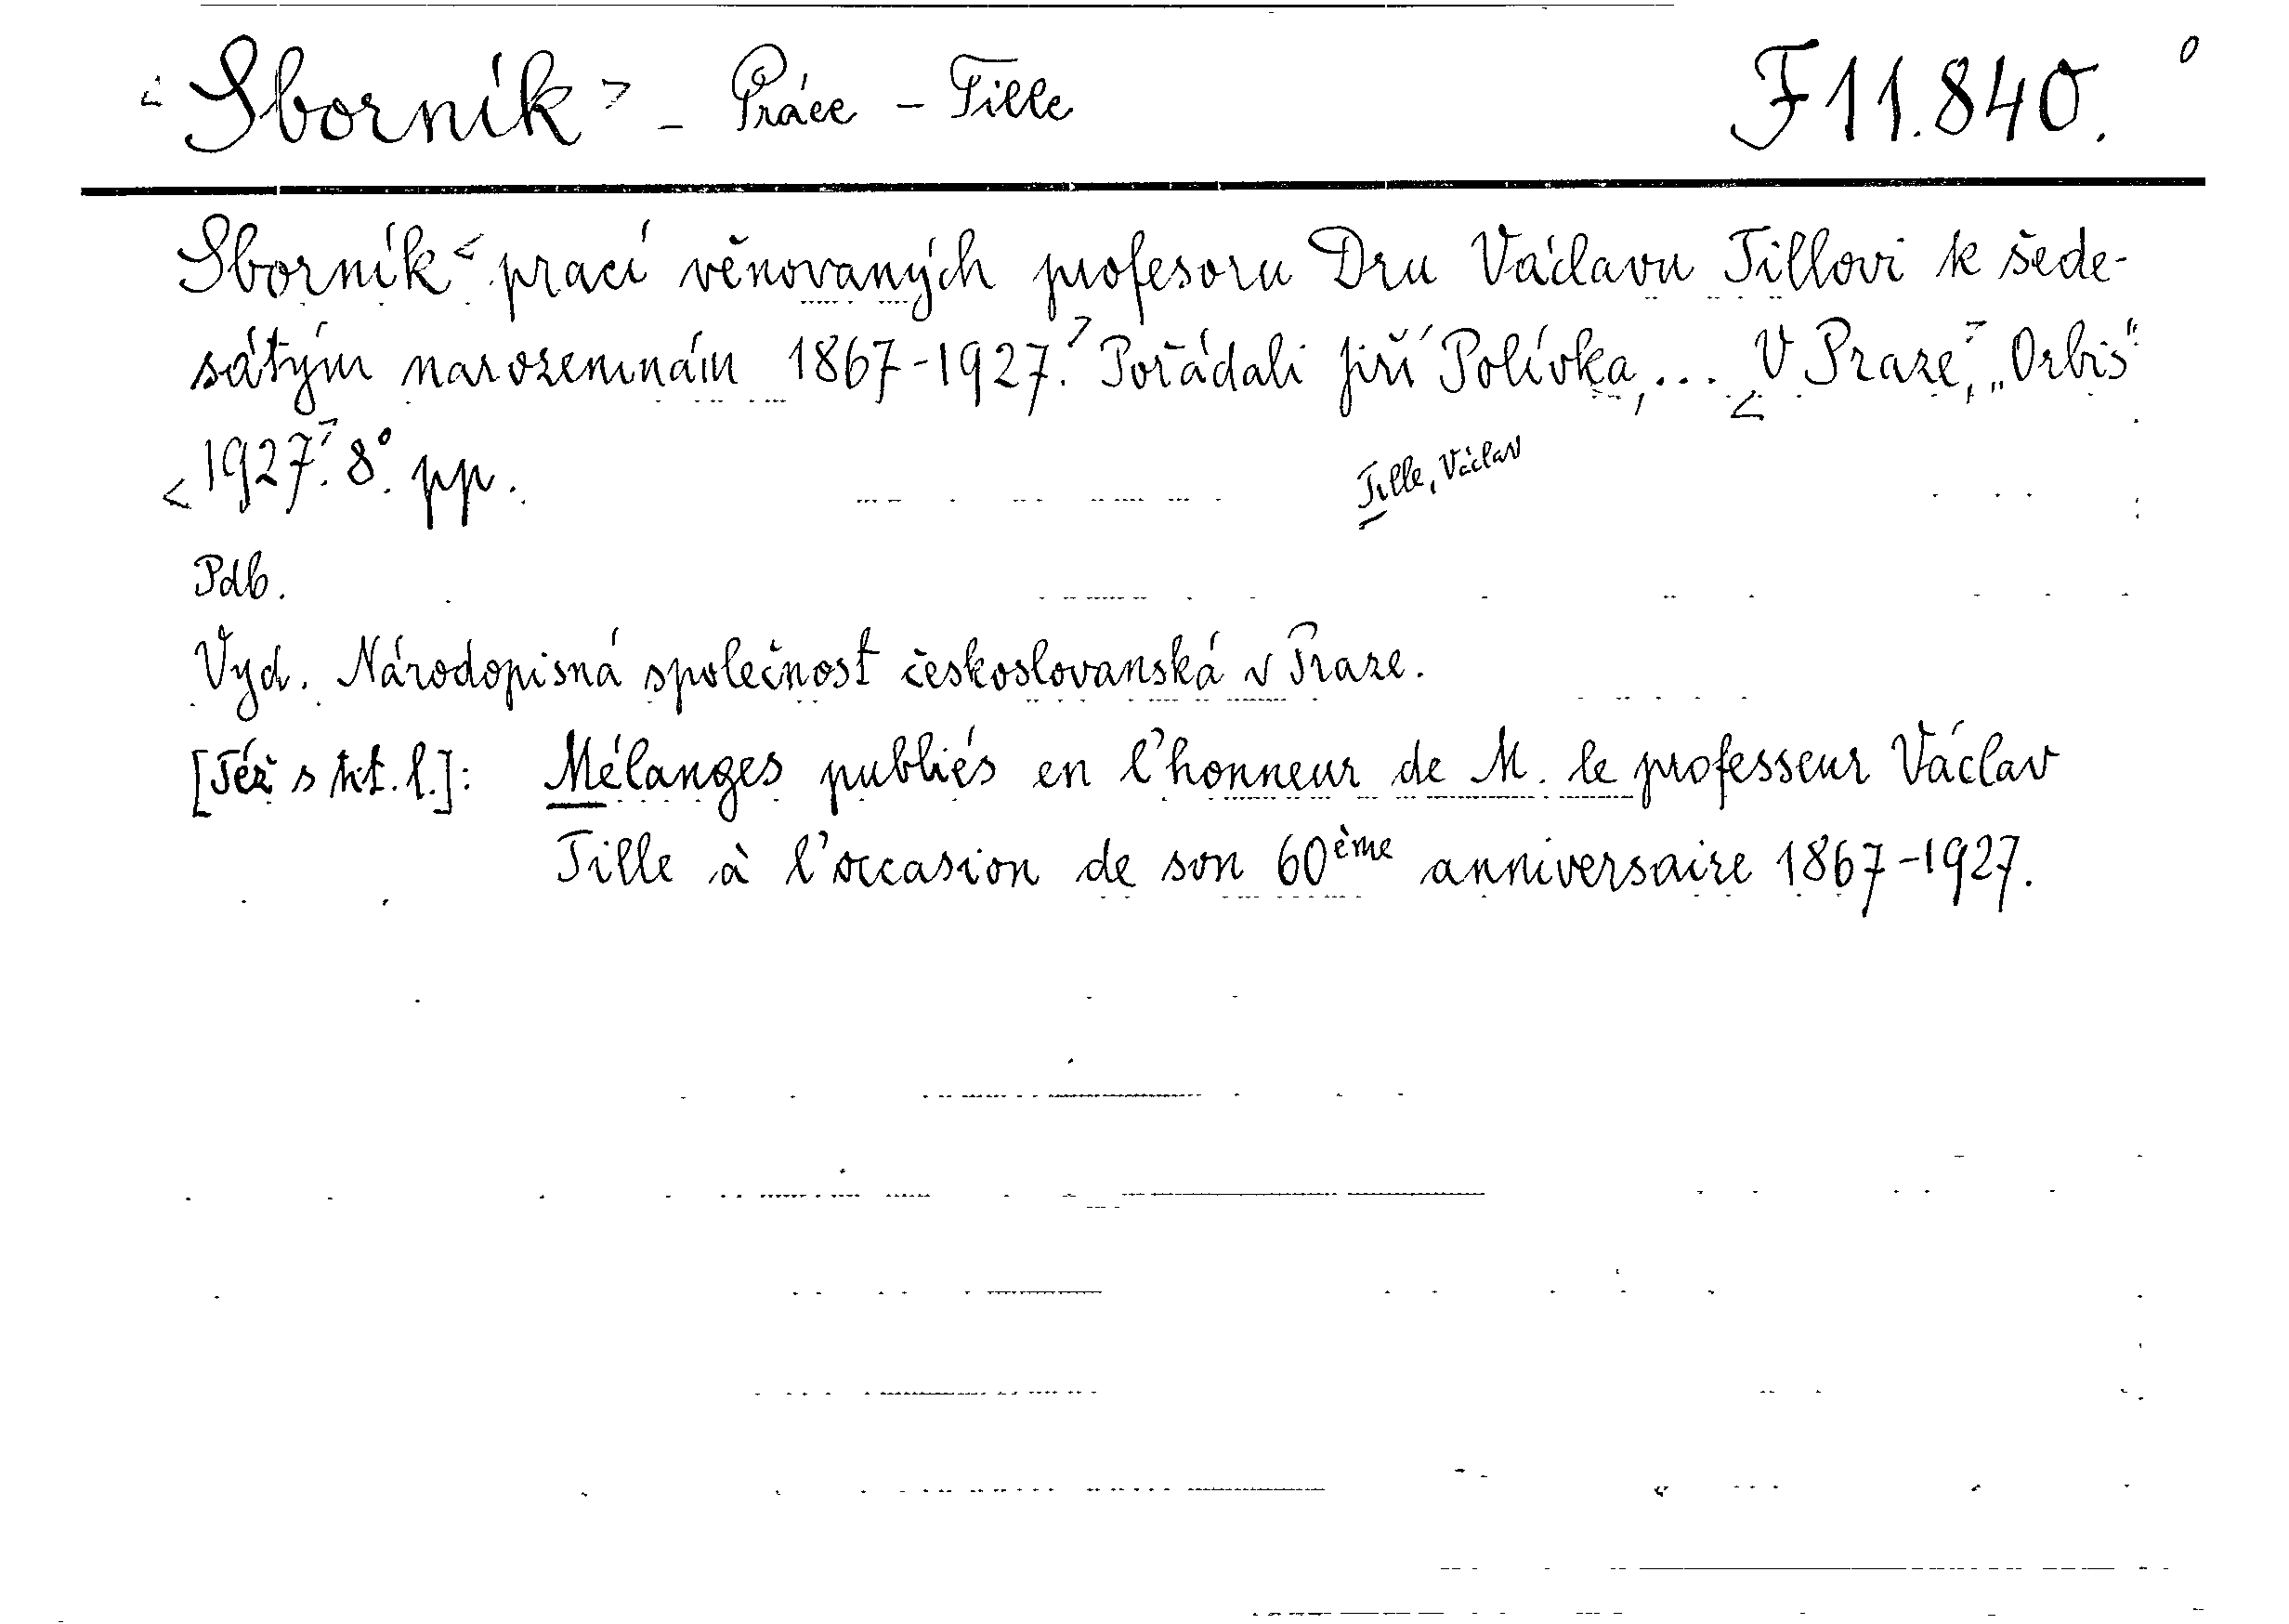 <Sborník> - Práce - Tille F 11.840. 0
Sborník < prací věnovaných profesoru Dru Václavu Tillovi k šede-
sátým narozeninám 1867-1927.> Pořádali Jiří Polívka,... <V Praze,> „Orbis"
<1927.> 8°. pp.
Tille, Václav
Pdb.
Vyd. Národopisná společnost českoslovanská v Praze.
[Též s tit. l.]: Mélanges publiés en l'honneur de M. le professeur Václav
Tille à l'occasion de son 60ème anniversaire 1867-1927.